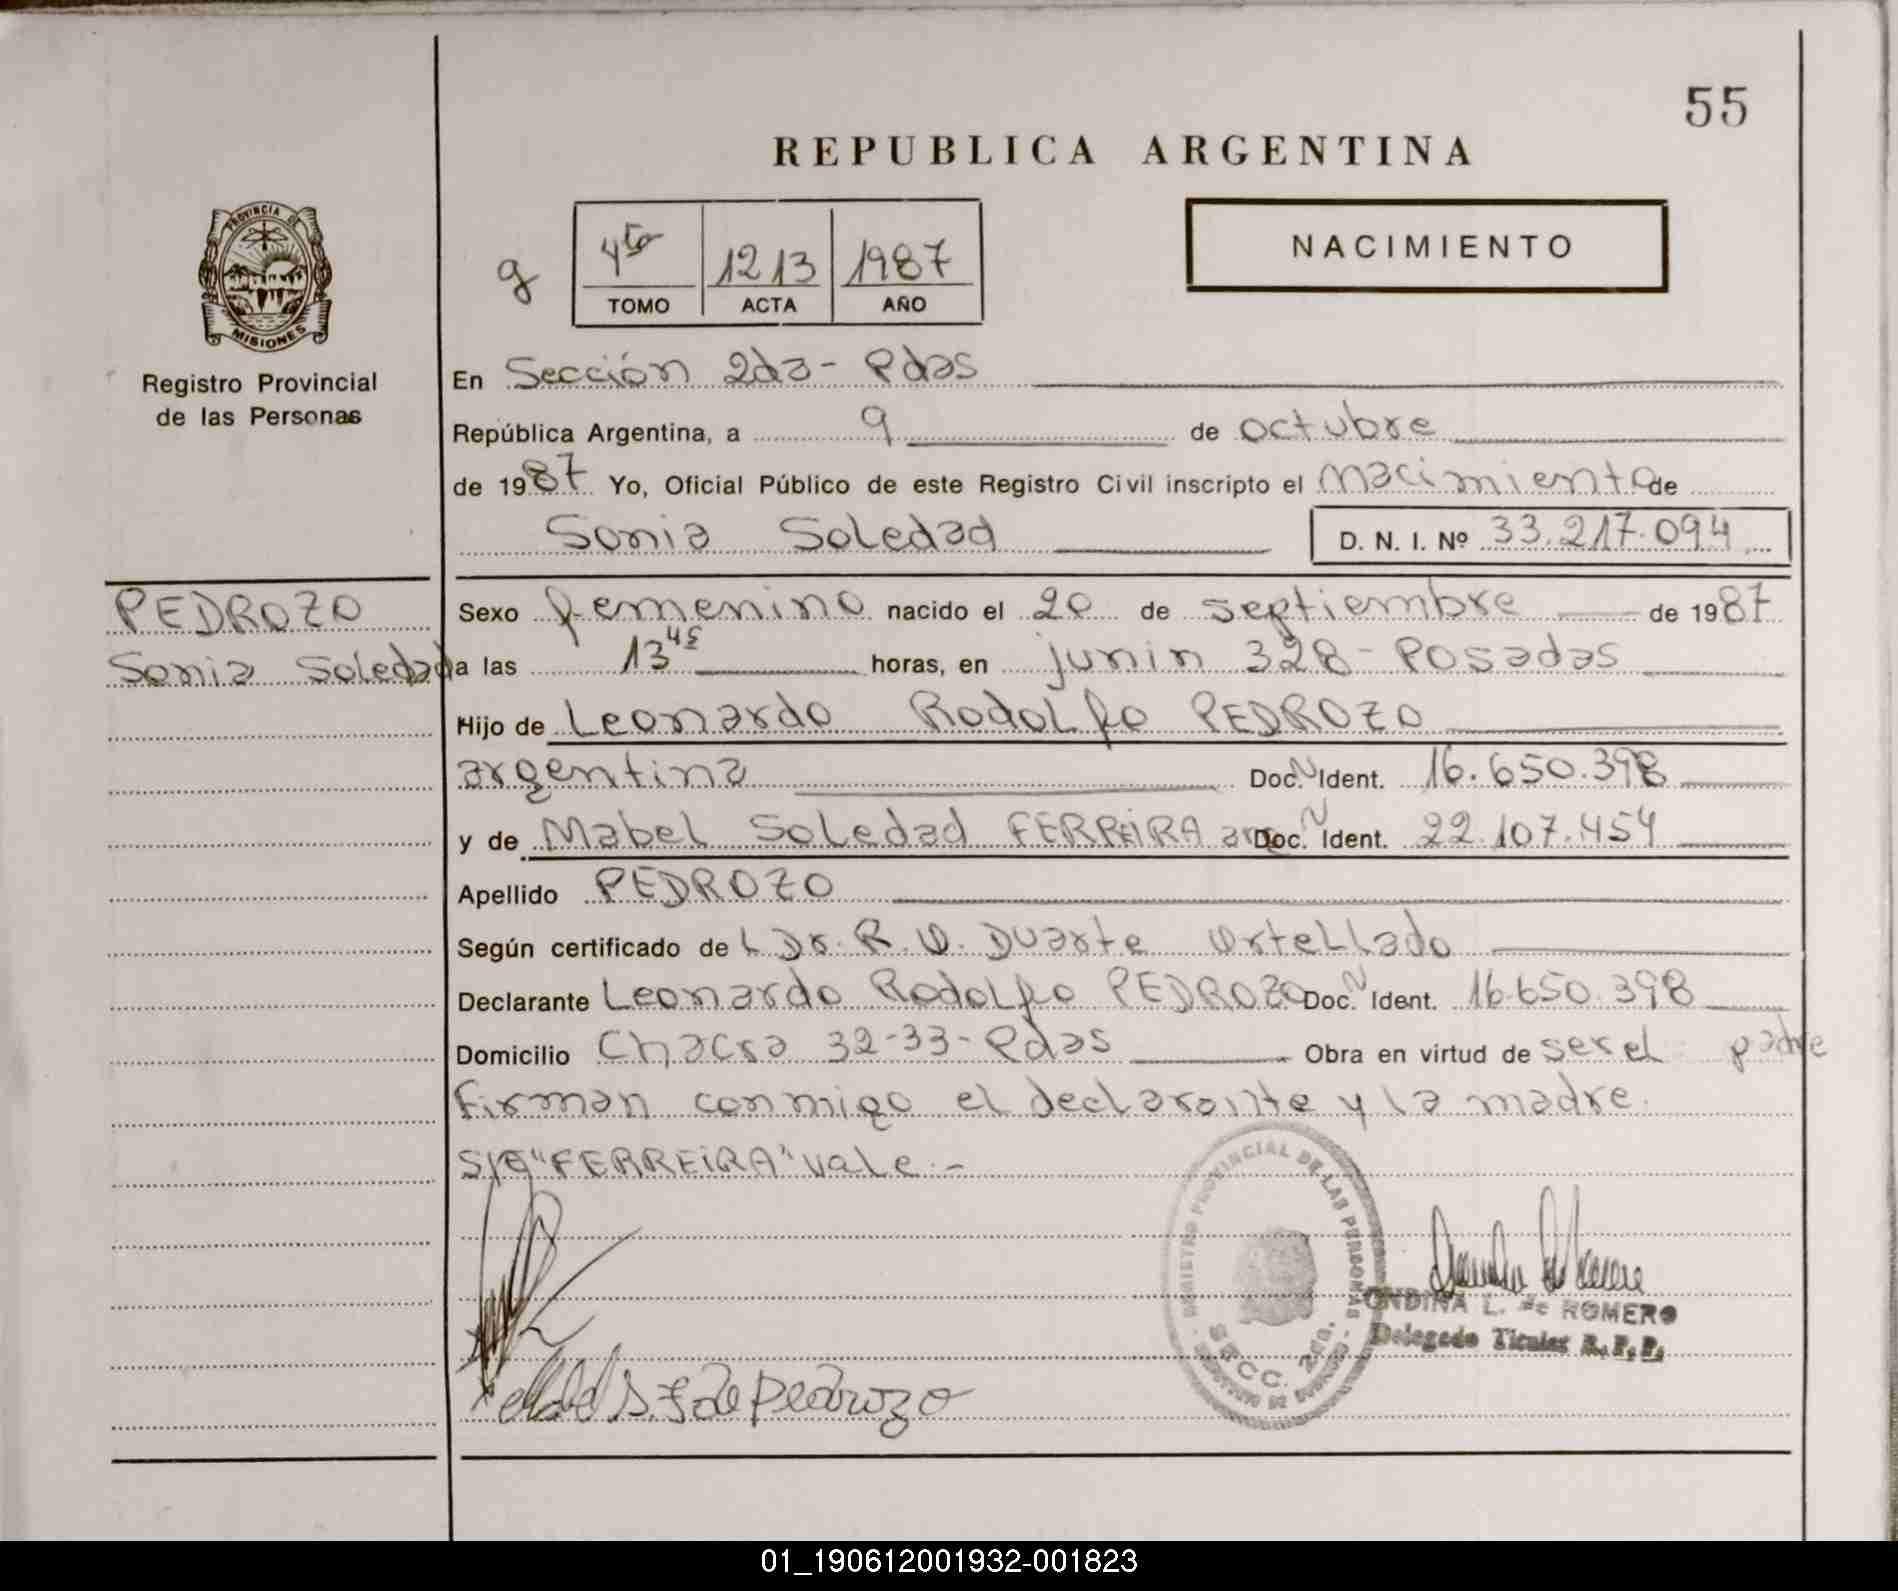 55
REPUBLICA ARGENTINA
PROVINCIA DE
MISIONES
Registro Provincial
de las Personas
g
4to 1213 1987
TOMO ACTA AÑO
NACIMIENTO
En Sección 2da - Pdas
República Argentina, a 9 de octubre
de 1987 Yo, Oficial Público de este Registro Civil inscripto el nacimiento de
Sonia Soledad D. N. I. Nº 33.217.094
PEDROZO
Sonia Soledad
Sexo femenino nacido el 20 de septiembre de 1987
a las 13 45 horas, en junin 328 - Posadas
Hijo de Leonardo Rodolfo PEDROZO
argentina Doc. N Ident. 16.650.398
y de Mabel Soledad FERREIRA arg Doc. N Ident. 22.107.454
Apellido PEDROZO
Según certificado de L Dr. R. O. Duarte Ortellado
Declarante Leonardo Rodolfo PEDROZO Doc. N Ident. 16.650.398
Domicilio Chacra 32-33 - Pdas Obra en virtud de ser el padre
Firman conmigo el declarante y la madre.
S/R "FERREIRA" vale.-
REGISTRO PROVINCIAL DE LAS PERSONAS
SECC. 2da.
ONDINA L. de ROMERO
Delegado Titular R. P. P.
Mabel S. F de Pedrozo
01_190612001932-001823